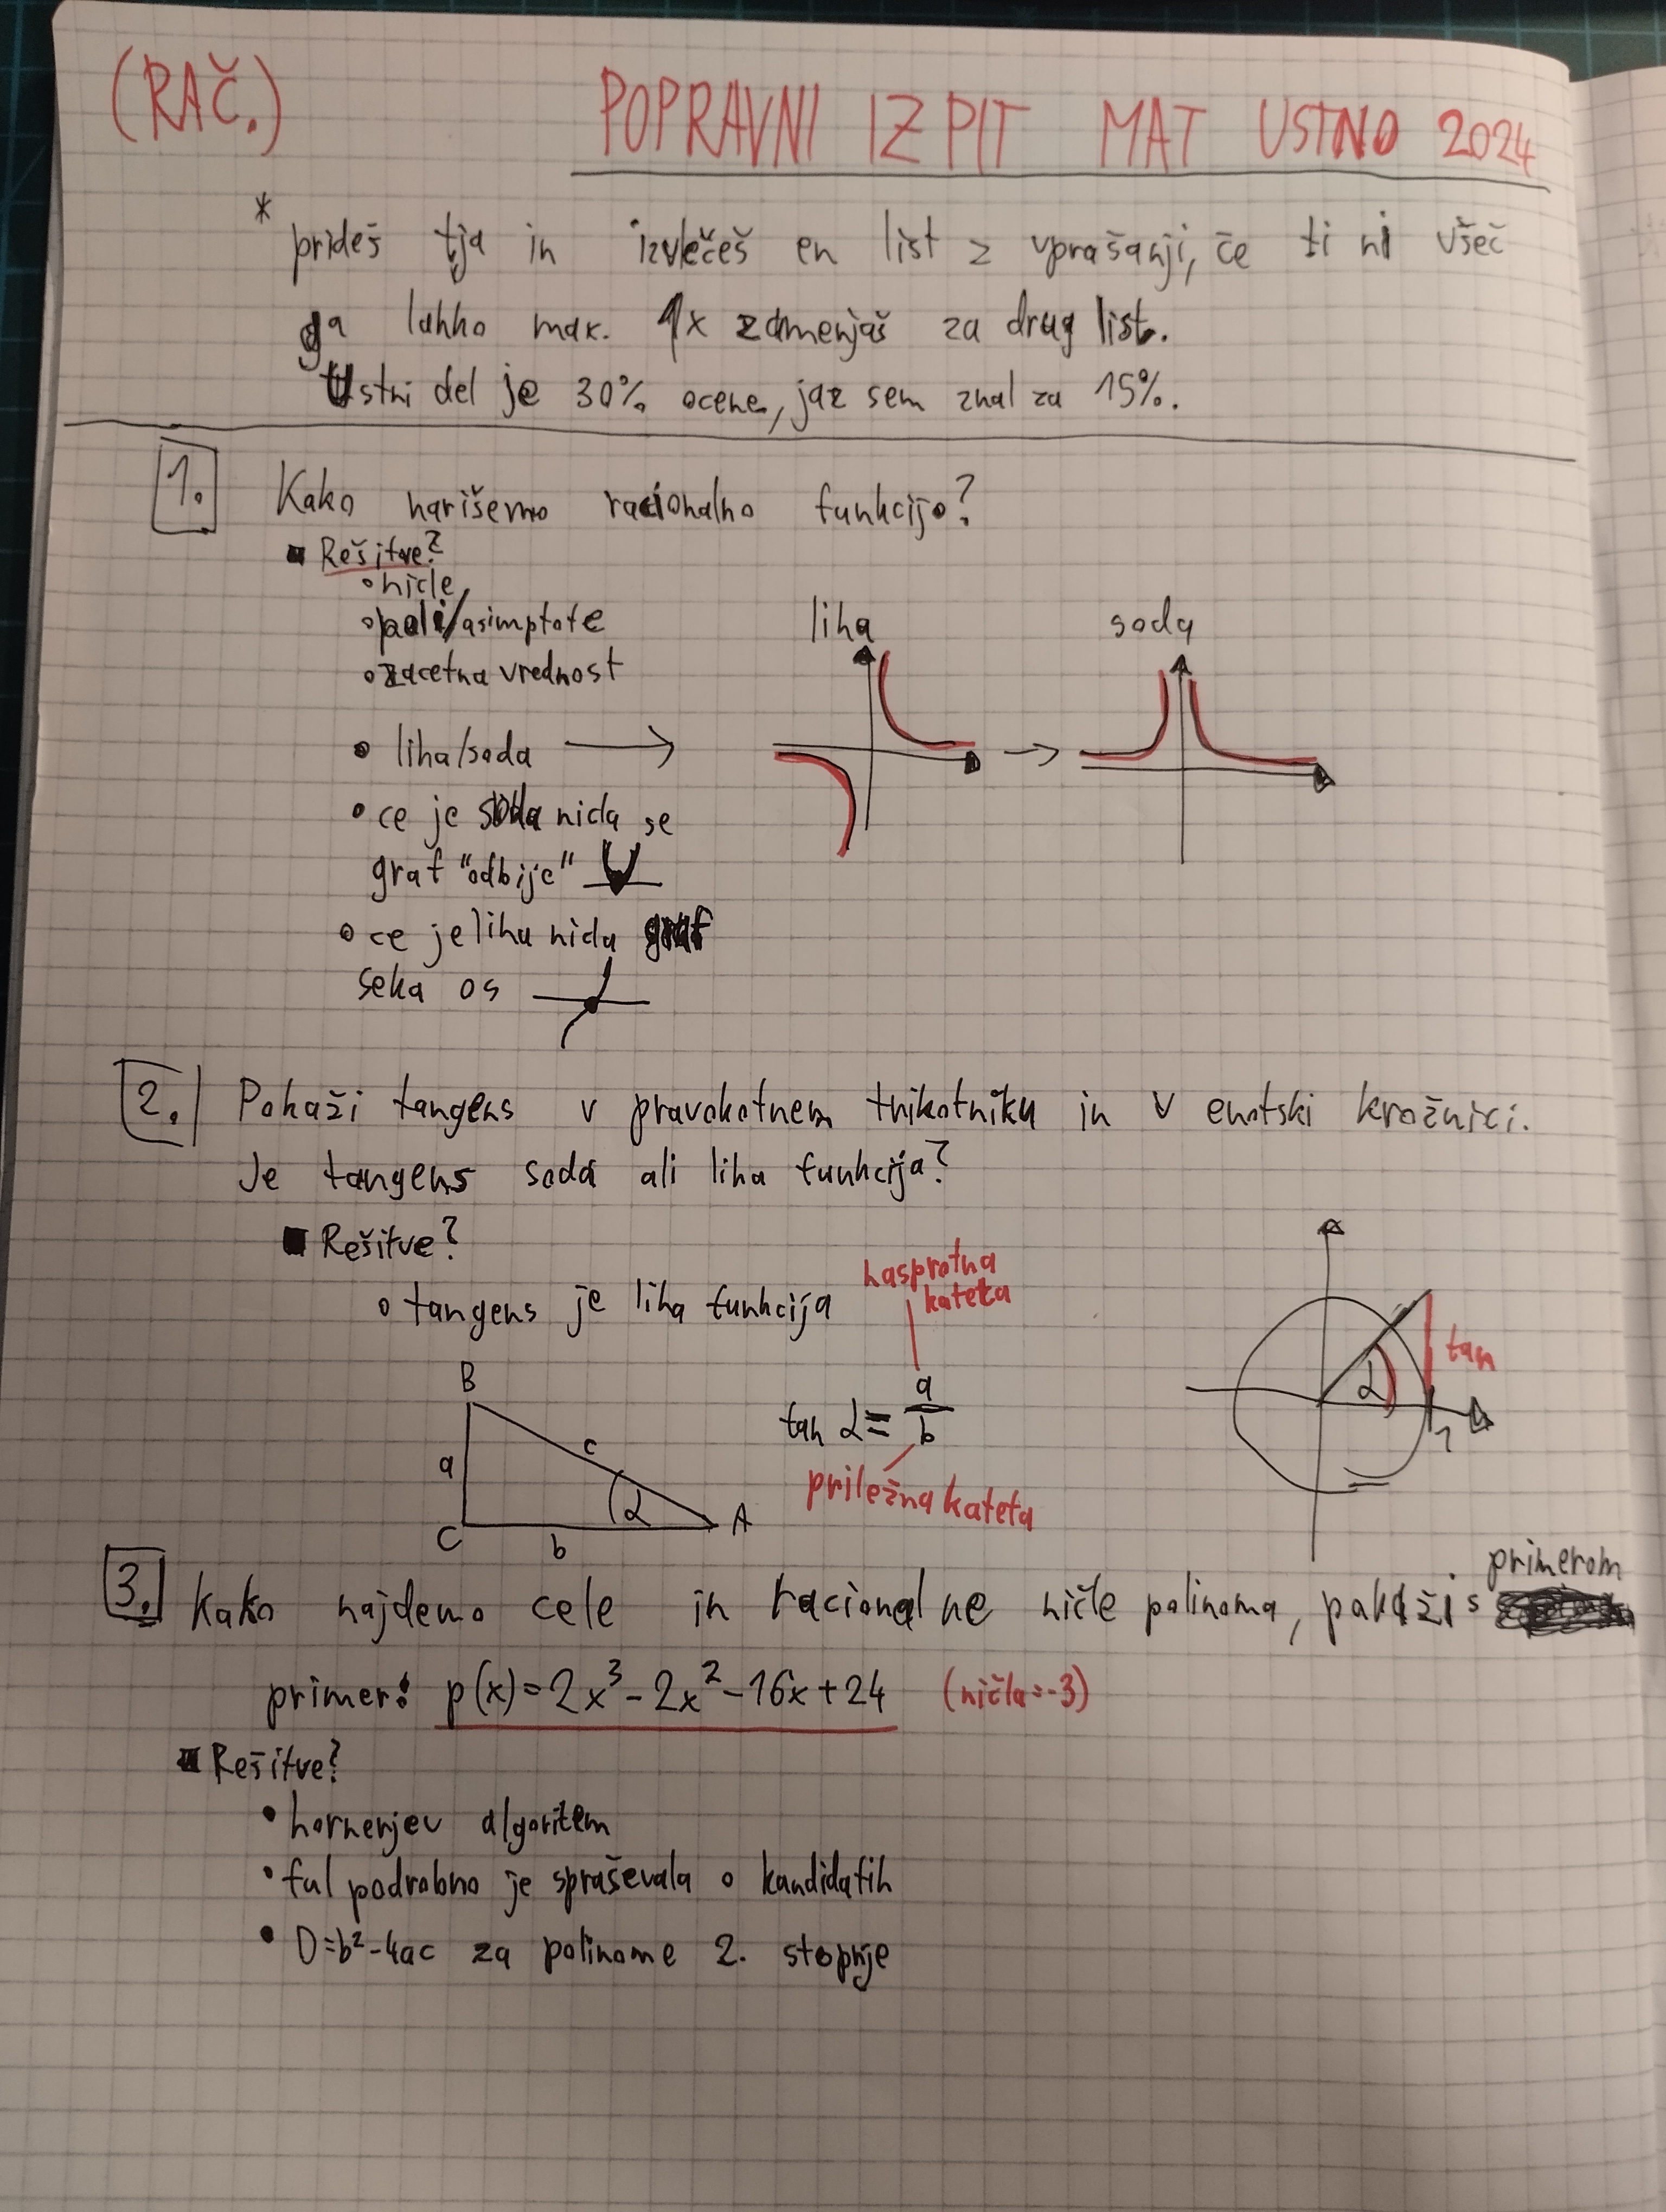 (RAČ.)
POPRAVNI IZPIT MAT USTNO 2024
* prideš tja in izvlečeš en list z vprašanji, če ti ni všeč
ga lahko max. 1x zamenjaš za drug list.
Ustni del je 30% ocene, jaz sem znal za 15%.
1. Kako narišemo racionalno funkcijo?
Rešitve?
nicle
poli/asimptote
zacetna vrednost
liha/soda
liha
soda
ce je soda nicla se
graf "odbije"
ce je liha nicla graf
seka os
2. Pokaži tangens v pravokotnem trikotniku in v enotski krožnici.
Je tangens soda ali liha funkcija?
Rešitve?
tangens je liha funkcija
nasprotna
kateta
B
a
c
C
b
α
A
tan α = a/b
priležna kateta
α
tan
1
3. Kako najdemo cele in racionalne ničle polinoma, pokaži s primerom
primer: p(x)=2x³-2x²-16x+24 (ničla=-3)
Rešitve?
hornerjev algoritem
ful podrobno je spraševala o kandidatih
D=b²-4ac za polinome 2. stopnje